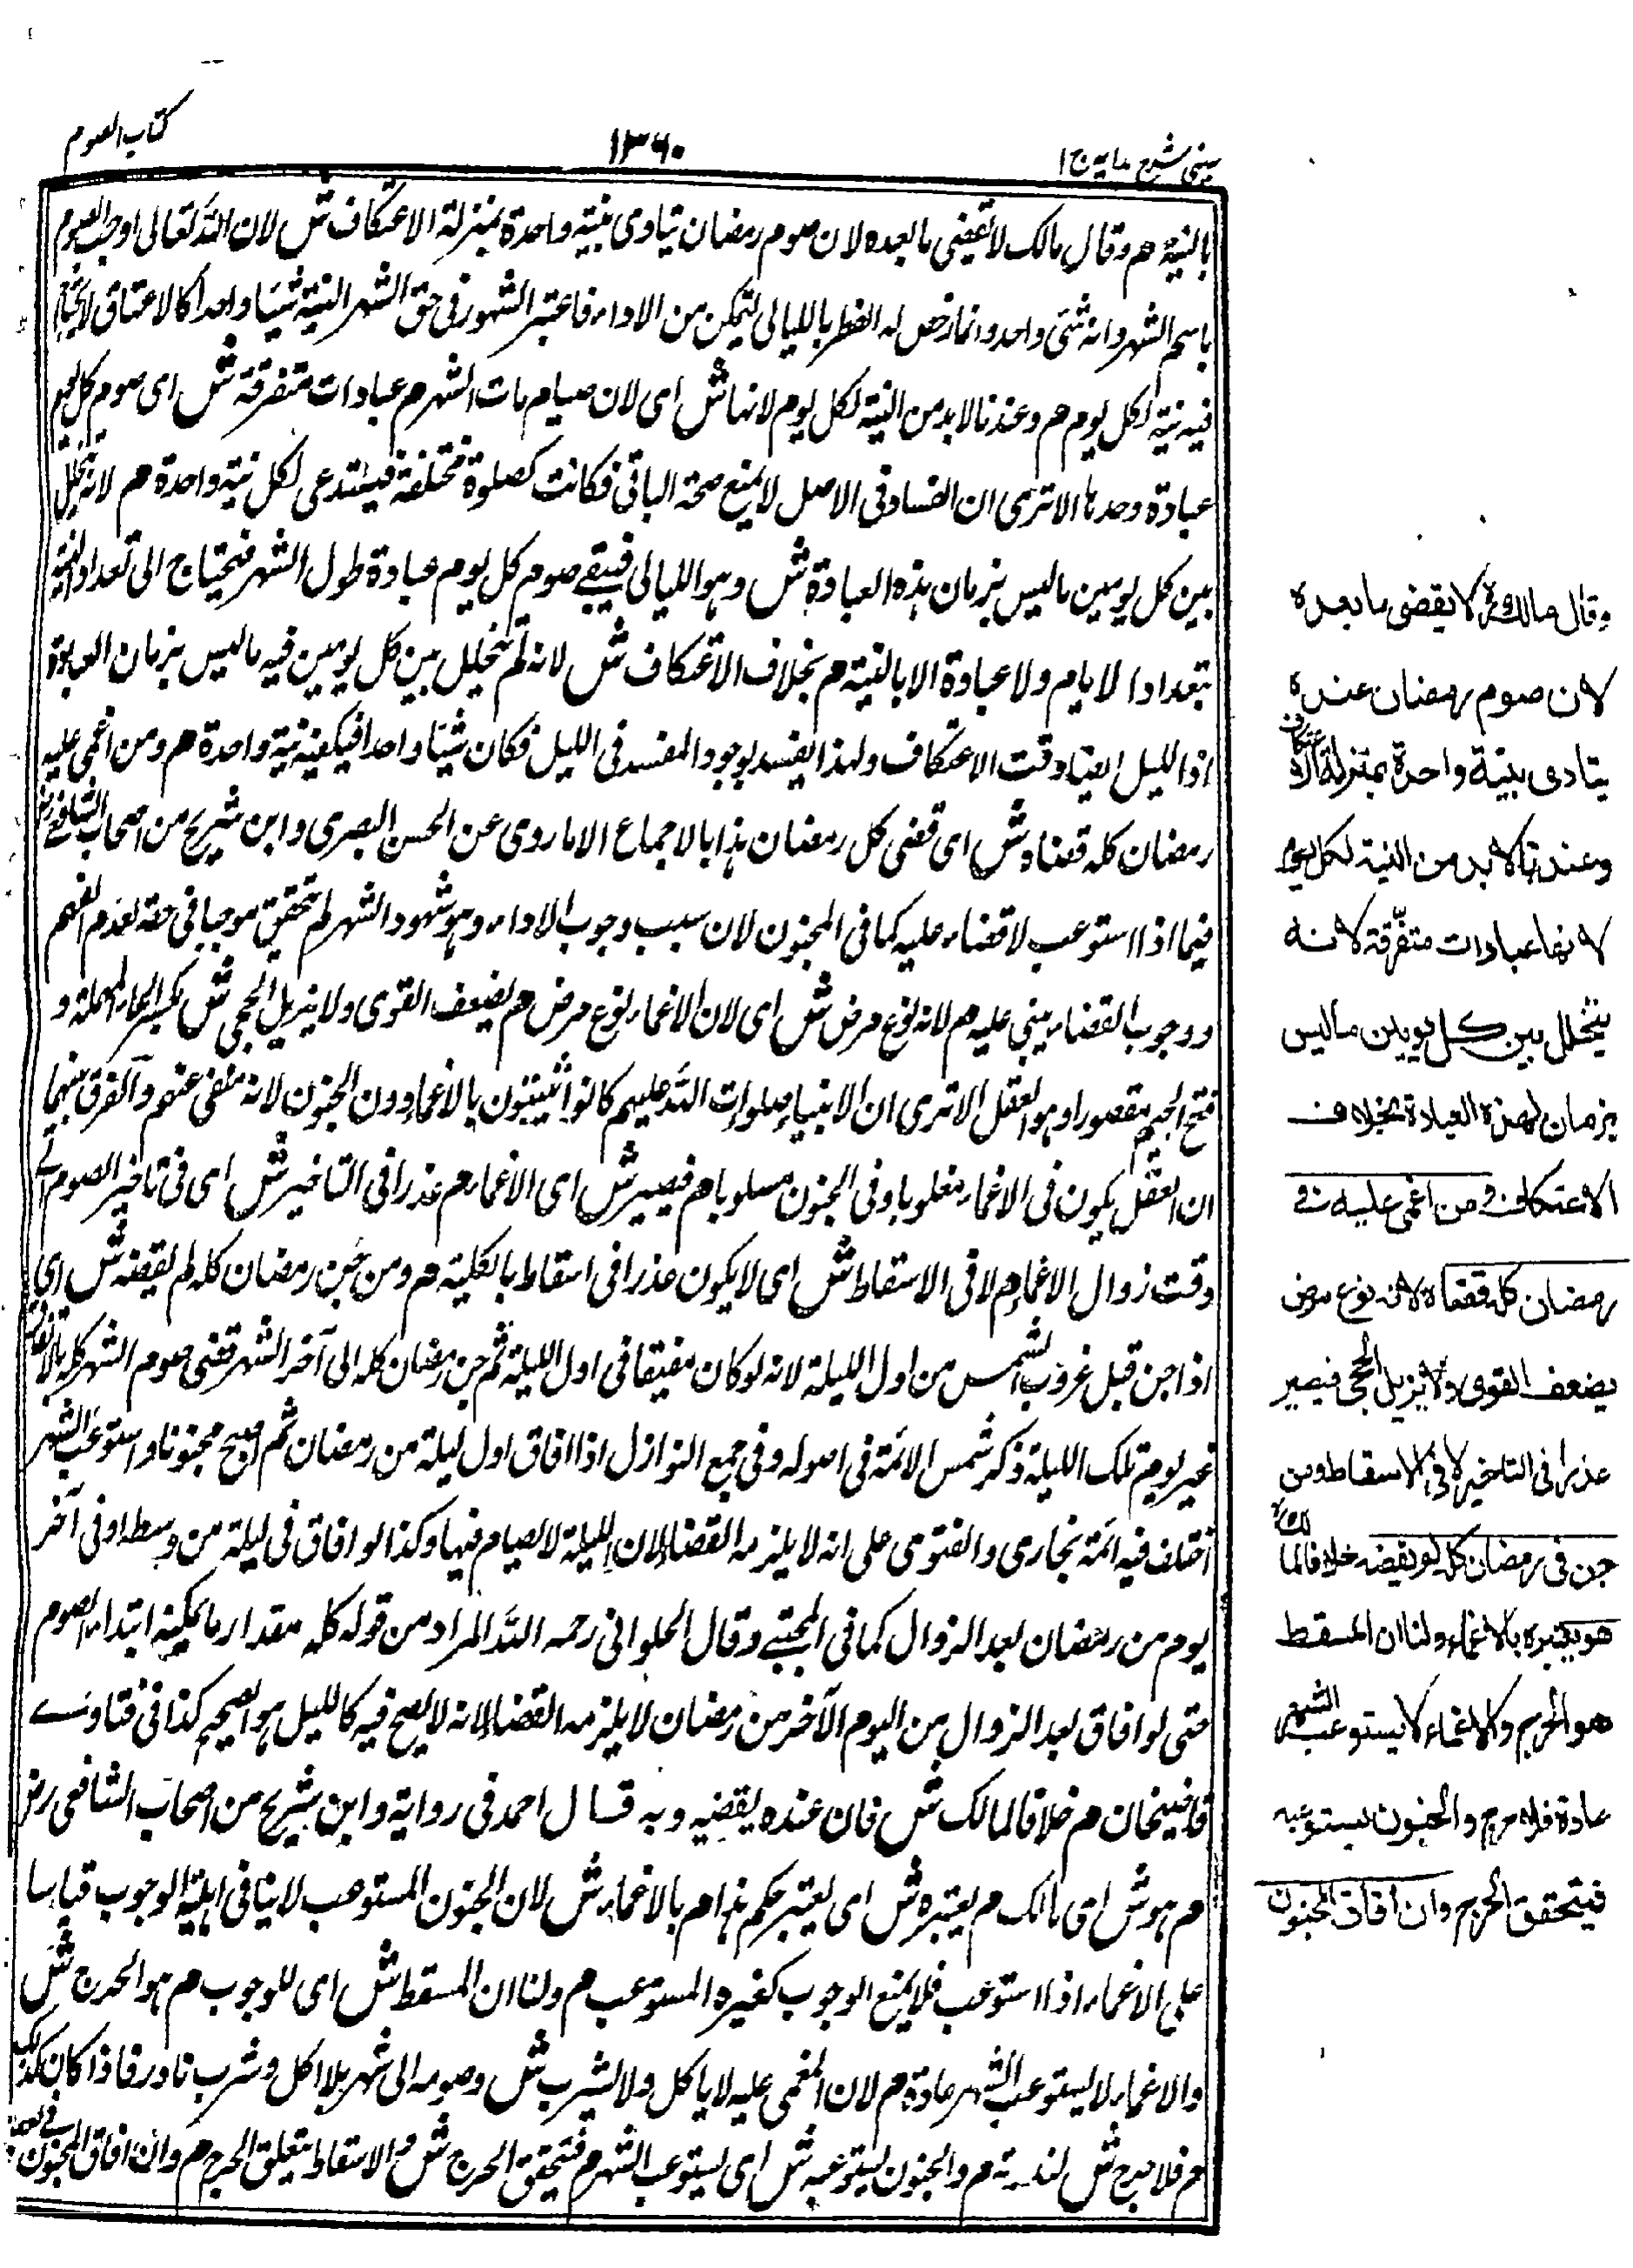 كتاب الصوم
١٣٦٠
عينى شرح هدايه ج ١
بالنية هم وقال مالك لا يقضى ما بعده لان صوم رمضان يتادى بنية واحدة بمنزلة الاعتكاف ش لان الله تعالى اوجب الصوم
باسم الشهر وانه شئ واحد وانما رخص له الفطر بالليالى ليتمكن من الاداء فاعتبر الشهور فى حق الشهر النية شيئا واحدا كالاعتاق لا يحتاج
فيه نية لكل يوم هم وعندنا لا بد من النية لكل يوم لانها ش اى لان صيام هات الشهر م عبادات متفرقة ش اى صوم كل يوم
عبادة وحدها الا ترى ان الفساد فى الاصل لا يمنع صحة الباقى فكانت كصلوة مختلفة فيستدعى لكل نية واحدة هم لانه تخلل
بين كل يومين ما ليس بزمان هذه العبادة ش وهو الليالى فيبقے صوم كل يوم عبادة طول الشهر فيحتاج الى تعداد النية
بتعداد الايام ولا عبادة الا بالنية م بخلاف الاعتكاف ش لانه لم يتخلل بين كل يومين فيه ما ليس بزمان العبادة
اذ الليل ايضا وقت الاعتكاف ولهذا يفسد بوجود المفسد فى الليل فكان شيئا واحدا فيكفيه نية واحدة هم ومن اغمى عليه
رمضان كله قضاه ش اى قضى كل رمضان هذا بالاجماع الا ما روى عن الحسن البصرى وابن شريح من اصحاب الشافعے رض
فيما اذا استوعب لا قضاء عليه كما فى المجنون لان سبب وجوب الاداء وهو شهود الشهر لم تحقق موجبا فى حقه لعدم الفهم
ووجوب القضاء يبنى عليه هم لانه نوع مرض ش اى لان الاغماء نوع مرض هم يضعف القوى ولا يزيل الحجى ش بكسر الحاء المهملة و
فتح الجيم مقصورا وهو العقل الا ترى ان الانبياء صلوات الله عليهم كانوا يبتلون بالاغماء دون الجنون لانه منفى عنهم والفرق بينهما
ان العقل يكون فى الاغماء مغلوبا وفى الجنون مسلوبا هم فيصير ش اى الاغماء هم عذرا فى التاخير ش اى فى تاخير الصوم الے
وقت زوال الاغماء هم لا فى الاسقاط ش اى لا يكون عذرا فى اسقاط بالكلية هم ومن جن رمضان كله لم يقضه ش اى
اذا جن قبل غروب الشمس من اول الليلة لانه لو كان مفيقا فى اول الليلة ثم جن رمضان كله الى آخر الشهر قضى صوم الشهر كله بالاتفاق
غير يوم تلك الليلة ذكر شمس الائمة فى اصوله وفى جمع النوازل اذا افاق اول ليلة من رمضان ثم اصبح مجنونا واستوعب الشهر
اختلف فيه ائمة بخارى والفتوى على انه لا يلزمه القضاء لان الليلة لا يصام فيها وكذا لو افاق فى ليلة من وسطه او فى آخر
يوم من رمضان بعد الزوال كما فى المجتبے وقال الحلوانى رحمه الله المراد من قوله كله مقدار ما يمكنه ابتداء الصوم
حتى لو افاق بعد الزوال من اليوم الآخر من رمضان لا يلزمه القضاء لانه لا يصح فيه كالليل هو الصحيح كذا فى فتاوے
قاضيخان هم خلافا لمالك ش فان عنده يقضيه وبه قال احمد فى رواية وابن شريح من اصحاب الشافعى رض
هم هو ش اى مالك م يعتبره ش اى يعتبر حكم هذا هم بالاغماء ش لان الجنون المستوعب لا ينافى اهلية الوجوب قياسا
على الاغماء اذا استوعب فلا يمنع الوجوب كغيره المستوعب م ولنا ان المسقط ش اى للوجوب م هو الحرج ش
والاغماء لا يستوعب الشهر عادة هم لان المغمى عليه لا ياكل ولا يشرب ش وصومه الى شهر بلا اكل وشرب نادر فاذا كان كذلك
هم فلا حرج ش لندرته م والجنون يستوعبه ش اى يستوعب الشهر م فيتحقق الحرج ش والاسقاط يتعلق الحرج م وان افاق المجنون فے بعضه
وقال مالك رح لا يقضى ما بعده
لان صوم رمضان عنده
يتادى بنية واحدة بمنزلة الاعتكاف
وعندنا لا بد من النية لكل يوم
لانها عبادات متفرّقة لانه
يتخلل بين كل يومين ما ليس
بزمان لهذه العبادة بخلاف
الاعتكاف ومن اغمى عليه فے
رمضان كله قضاه لانه نوع مرض
يضعف القوى ولا يزيل الحجى فيصير
عذرا فى التاخير لا فى الاسقاط ومن
جن فى رمضان كله لم يقضه خلافا لمالك
هو يعتبره بالاغماء ولنا ان المسقط
هو الحرج والاغماء لا يستوعب الشهر
عادة فلا حرج والجنون يستوعبه
فيتحقق الحرج وان افاق المجنون